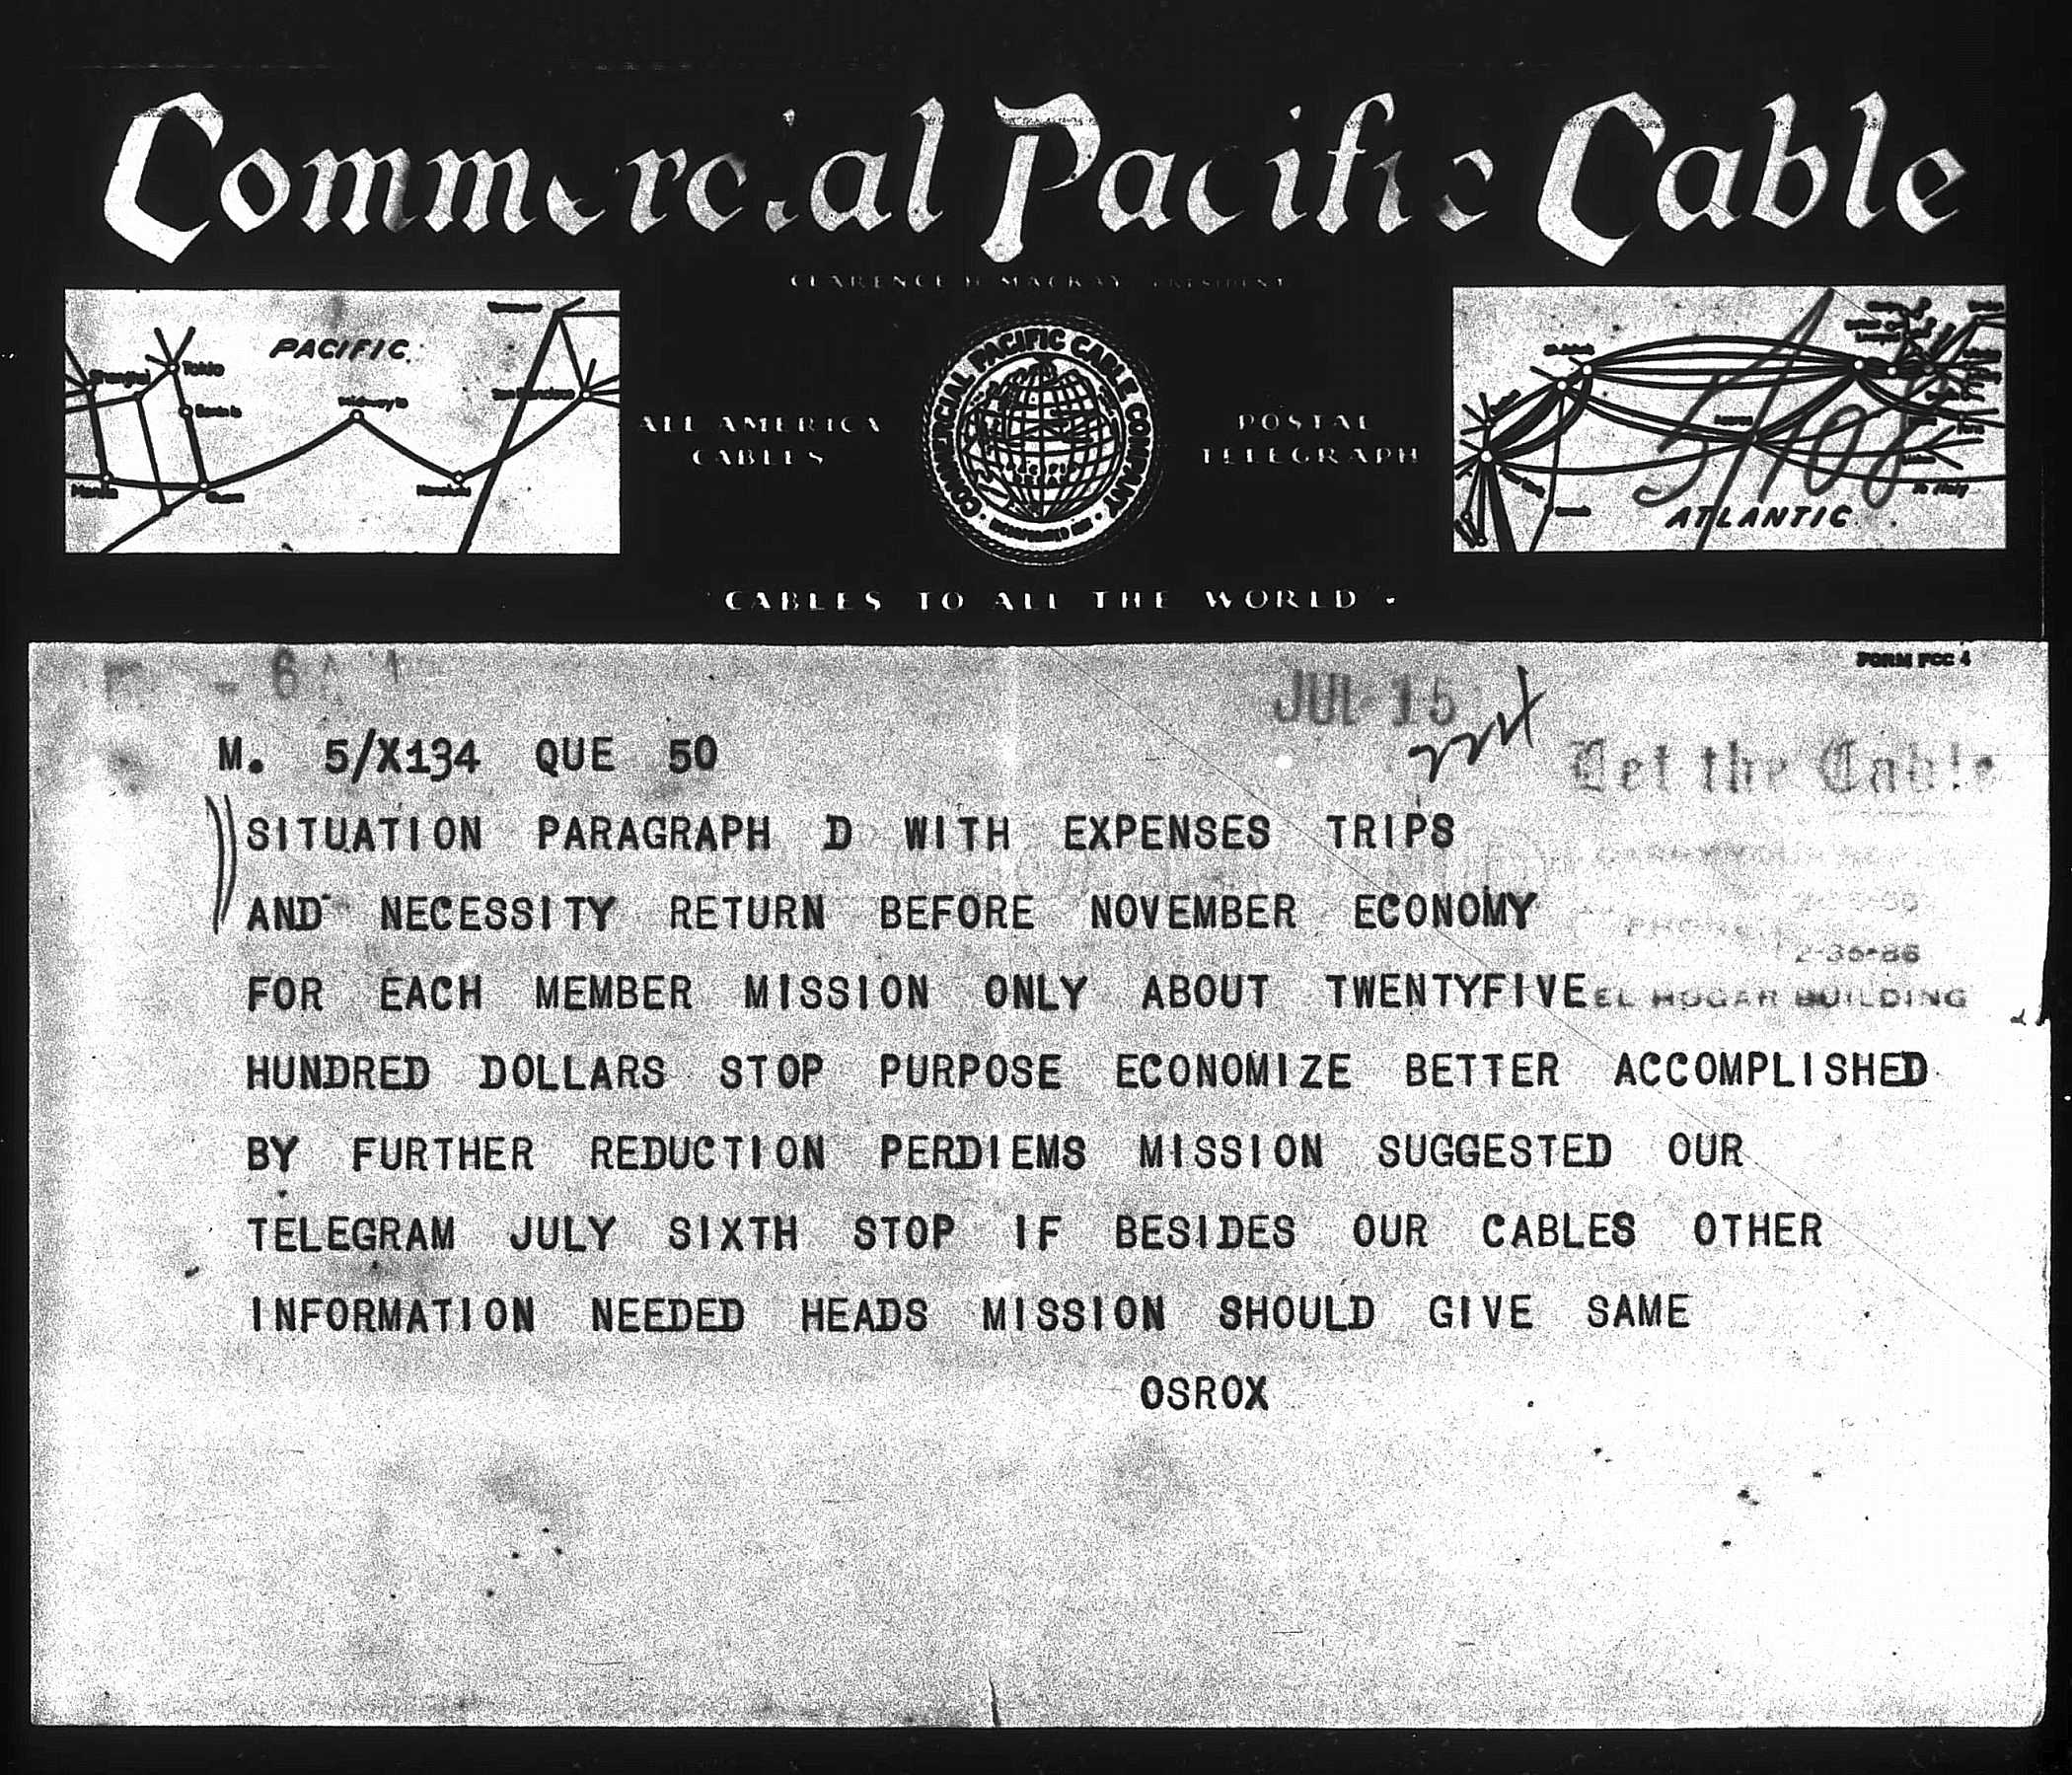 Commercial Pacific Cable
CLARENCE H. MACKAY PRESIDENT
PACIFIC
Shanghai
Tokio
Bonin Is
Midway Is
San Francisco
Manila
Guam
Honolulu
ALL AMERICA
CABLES
COMMERCIAL PACIFIC CABLE COMPANY
POSTAL
TELEGRAPH
ATLANTIC
CABLES TO ALL THE WORLD
FORM FCC 4
JUL 15
M. 5/X134 QUE 50
Let the Cable
SITUATION PARAGRAPH D WITH EXPENSES TRIPS
AND NECESSITY RETURN BEFORE NOVEMBER ECONOMY
2-35-86
FOR EACH MEMBER MISSION ONLY ABOUT TWENTYFIVE
EL HOGAR BUILDING
HUNDRED DOLLARS STOP PURPOSE ECONOMIZE BETTER ACCOMPLISHED
BY FURTHER REDUCTION PERDIEMS MISSION SUGGESTED OUR
TELEGRAM JULY SIXTH STOP IF BESIDES OUR CABLES OTHER
INFORMATION NEEDED HEADS MISSION SHOULD GIVE SAME
OSROX